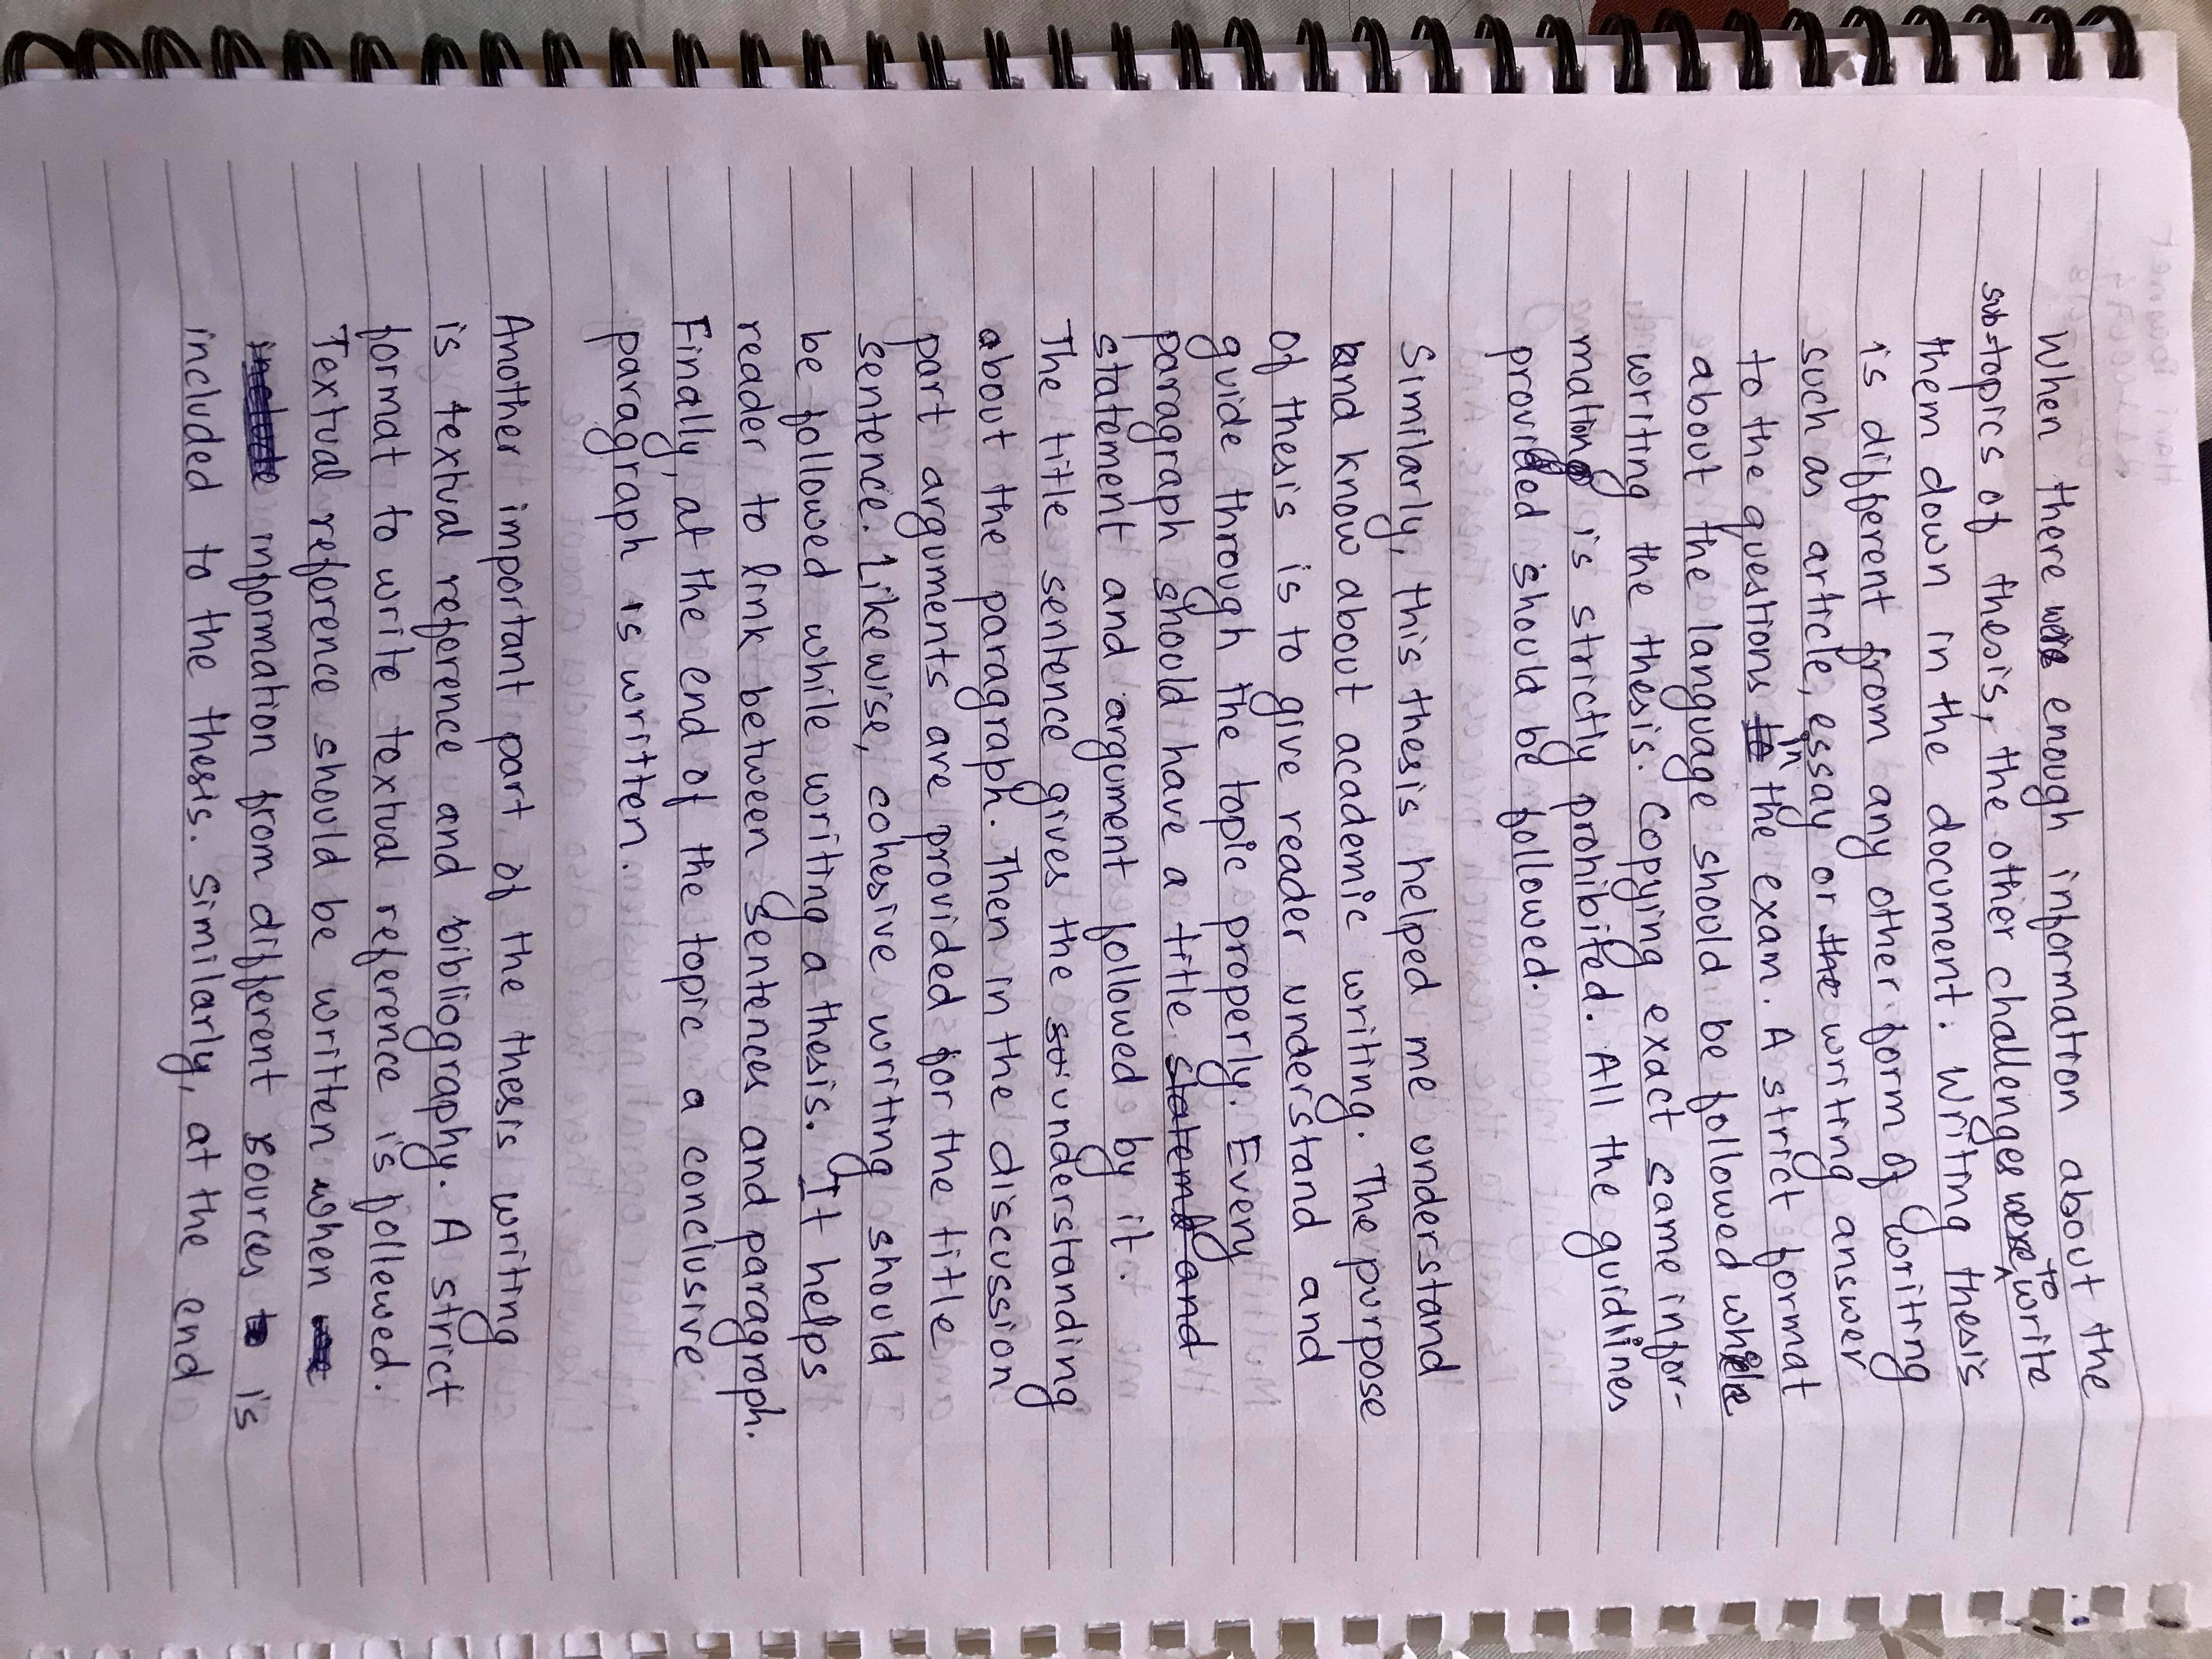 When there were enough information about the
sub-topics of thesis, the other challenges were to write
them down in the document. Writing thesis
is different from any other form of writing
such as article, essay or the writing answer
to the questions to in the exam. A strict format
about the language should be followed while
writing the thesis. Copying exact same infor-
mation is strictly prohibited. All the guidlines
provided should be followed.
Similarly, this thesis helped me understand
and know about academic writing. The purpose
of thesis is to give reader understand and
guide through the topic properly. Every
paragraph should have a title statem and
statement and argument followed by it.
The title sentence gives the understanding
about the paragraph. Then in the discussion
part arguments are provided for the title
sentence. Likewise, cohesive writing should
be followed while writing a thesis. It helps
reader to link between sentences and paragraph.
Finally, at the end of the topic a conclusive
paragraph is written.
Another important part of the thesis writing
is textual reference and bibliography. A strict
format to write textual reference is follewed.
Textual reference should be written when
include information from different sources to is
included to the thesis. Similarly, at the end